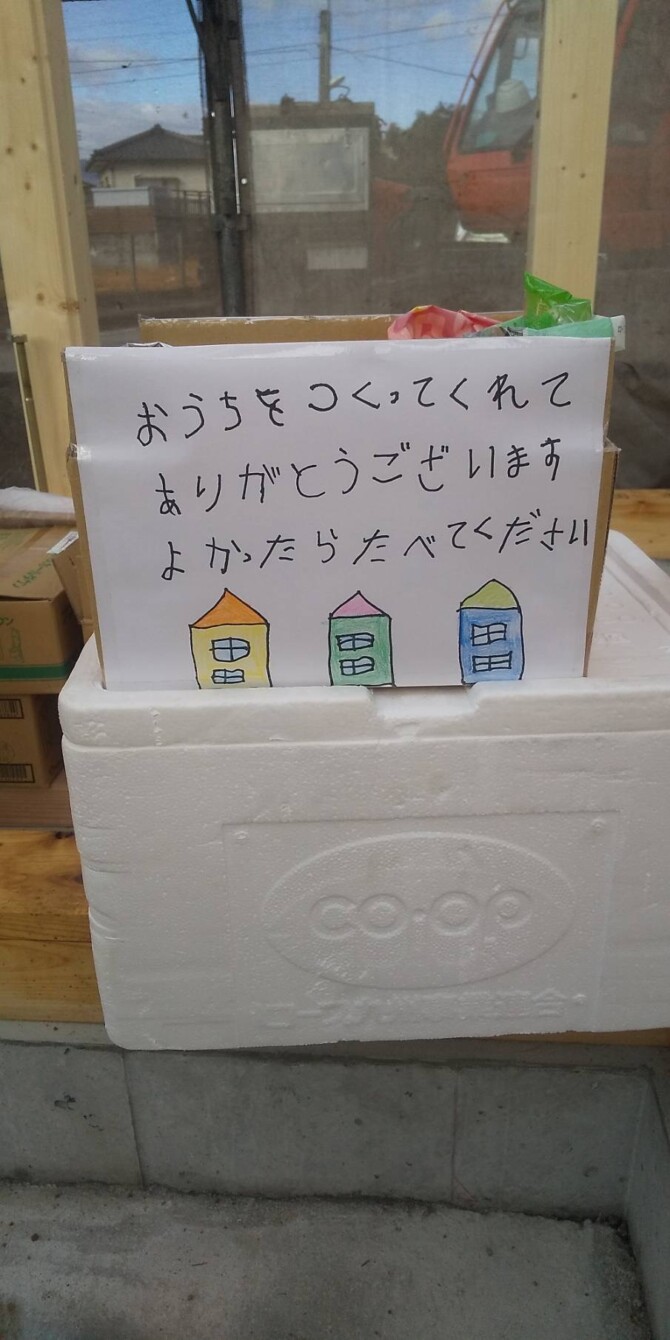 おうちをつくってくれて
ありがとうございます
よかったらたべてください
co-op